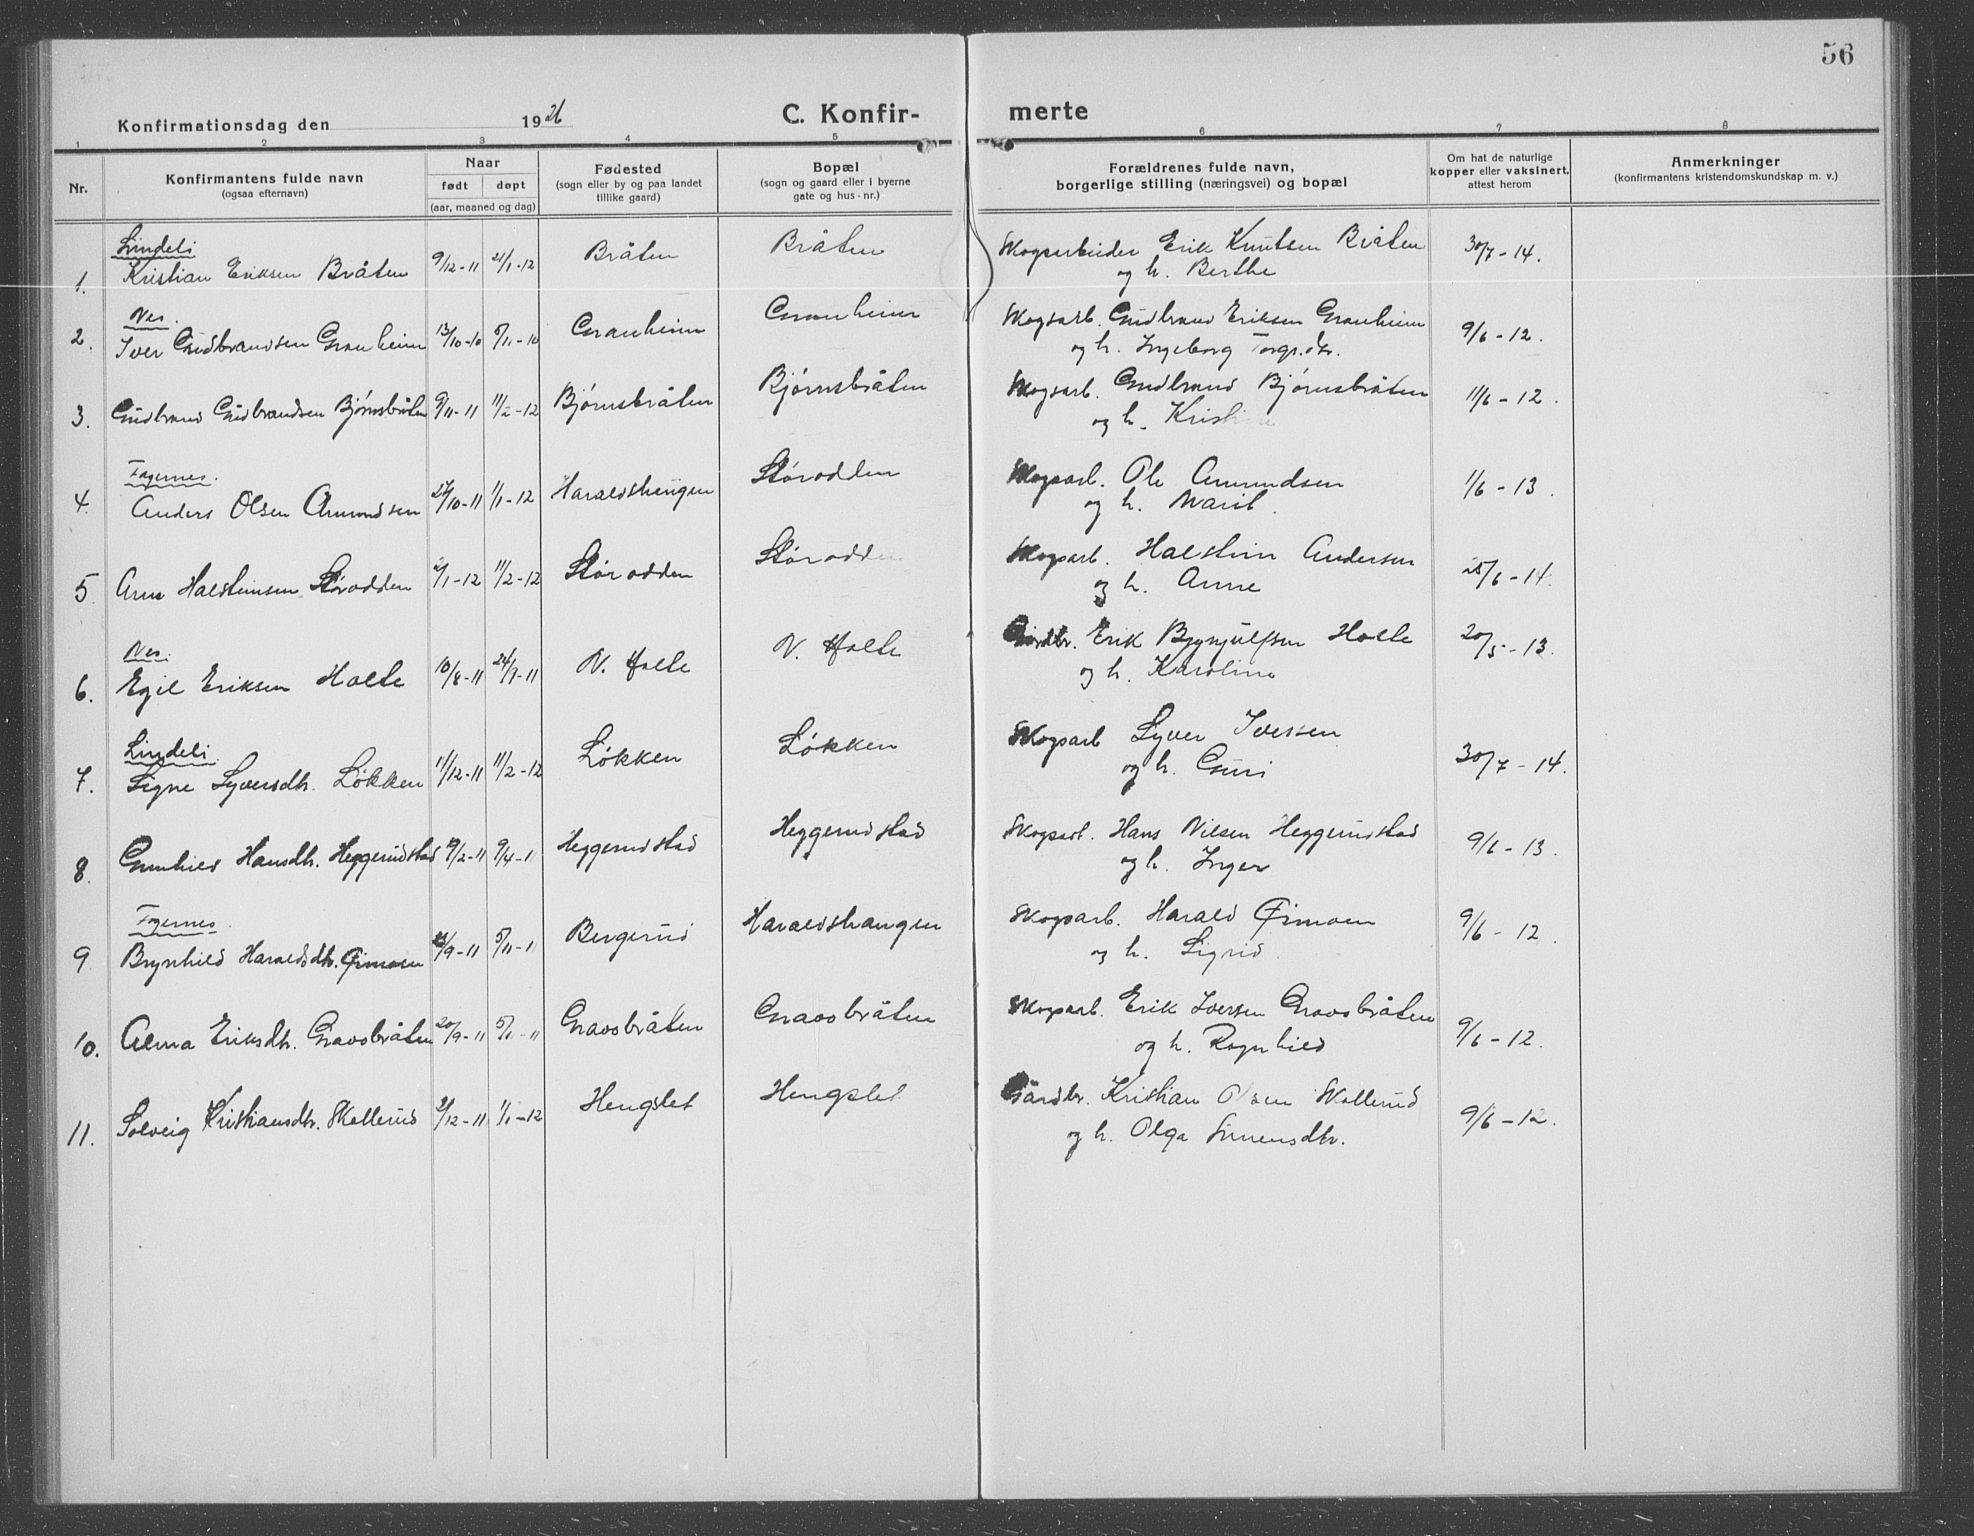 56
Konfirmationsdag den 1926
C. Konfir-
merte
1 2 3 4 5 6 7 8
Nr.
Konfirmantens fulde navn
(ogsaa efternavn)
Naar
født døpt
(aar, maaned og dag)
Fødested
(sogn eller by og paa landet
tillike gaard)
Bopæl
(sogn og gaard eller i byerne
gate og hus-nr.)
Forældrenes fulde navn,
borgerlige stilling (næringsvei) og bopæl
Om hat de naturlige
kopper eller vaksinert,
attest herom
Anmerkninger
(konfirmantens kristendomskundskap m. v.)
Lindeli
1. Kristian Eriksen Bråten 9/12-11 21/1-12 Bråten Bråten Skogsarbeider Erik Knutsen Bråten 30/7-14.
og h. Berthe
Nes.
2. Iver Gudbrandsen Granheim 13/10-10 5/11-10 Granheim Granheim Skogsarb. Gudbrand Eriksen Granheim 9/6-12.
og h. Ingeborg Torgr.dtr.
3. Gudbrand Gudbrandsen Bjørnsbråten 9/11-11 11/2-12 Bjørnsbråten Bjørnsbråten Skogsarb. Gudbrand Bjørnsbråten 11/6-12.
og h. Kristine
Fagernes.
4. Anders Olsen Amundsen 27/10-11 1/1-12 Haraldshaugen Størodden Skogsarb. Ole Amundsen 1/6-13.
og h. Marit.
5. Arne Halsteinsen Størodden 2/1-12 11/2-12 Størodden Størodden Skogsarb. Halstein Andersen 25/6-14.
og h. Anne
Nes.
6. Egil Eriksen Holte 10/8-11 24/9-11 N. Holte N. Holte Gårdbr. Erik Brynjulfsen Holte 20/5-13.
og h. Karoline
Lindeli
7. Signe Syversdtr. Løkken 11/12-11 11/2-12 Løkken Løkken Skogsarb Syver Iversen 30/7-14.
og h. Guri
8. Gunhild Hansdtr. Heggerudstad /2-11 9/4-11 Heggerudstad Heggerudstad Skogsarb. Hans Nilsen Heggerudstad 9/6-13.
og h. Inger
Fagernes.
9. Brynhild Haraldsdtr. Ørmoen /9-11 5/11-11 Bergerud Haraldshaugen Skogsarb. Harald Ørmoen 9/6-12.
og h. Sigrid
10. Alma Eriksdtr. Gravobråten 20/9-11 5/11-11 Gravobråten Gravobråten Skogsarb. Erik Iversen Gravobråten 9/6-12.
og h. Ragnhild
11. Solveig Kristiansdtr. Skollerud /12-11 1/1-12 Hengslet Hengslet Gårdbr. Kristian Olsen Skollerud 9/6-12.
og h. Olga Simensdtr.